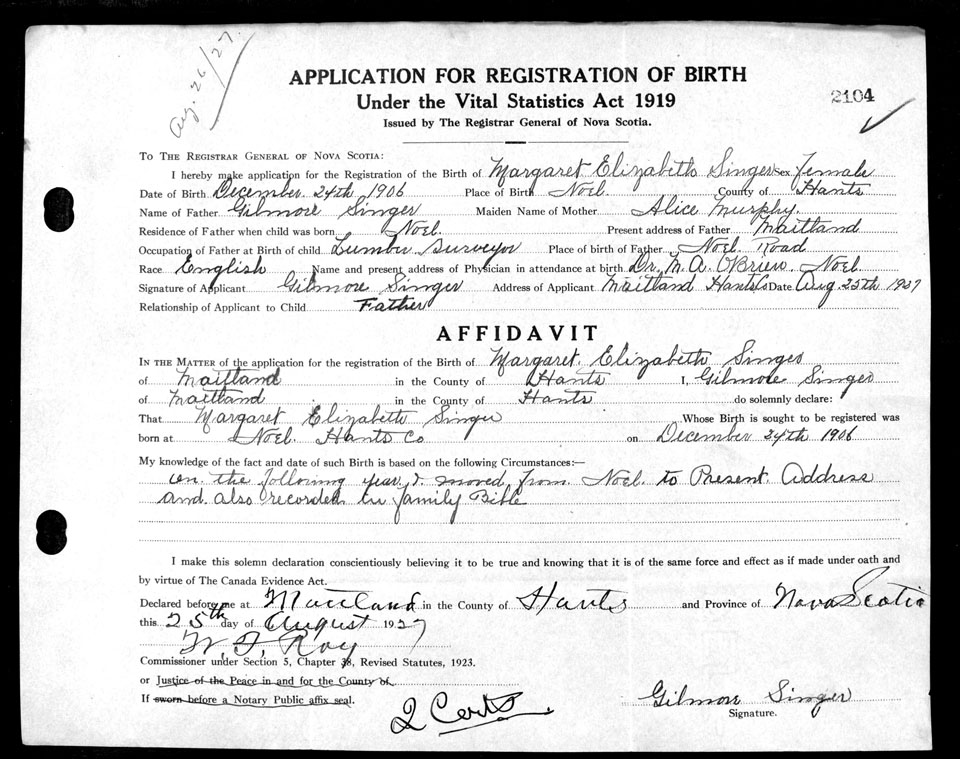 Aug. 26/27.
APPLICATION FOR REGISTRATION OF BIRTH
Under the Vital Statistics Act 1919
2104
Issued by The Registrar General of Nova Scotia.
TO THE REGISTRAR GENERAL OF NOVA SCOTIA:
I hereby make application for the Registration of the Birth of Margaret Elizabeth Singer Sex Female
Date of Birth December 24th 1906 Place of Birth Noel County of Hants
Name of Father Gilmore Singer Maiden Name of Mother Alice Murphy
Residence of Father when child was born Noel. Present address of Father Maitland
Occupation of Father at Birth of child Lumber Surveyor Place of birth of Father Noel Road
Race English Name and present address of Physician in attendance at birth Dr. M. A. O'Brien. Noel
Signature of Applicant Gilmore Singer Address of Applicant Maitland Hants Co Date Aug. 25th 1927
Relationship of Applicant to Child Father
AFFIDAVIT
IN THE MATTER of the application for the registration of the Birth of Margaret Elizabeth Singer
of Maitland in the County of Hants I, Gilmore Singer
of Maitland in the County of Hants do solemnly declare:
That Margaret Elizabeth Singer Whose Birth is sought to be registered was
born at Noel. Hants Co on December 24th 1906
My knowledge of the fact and date of such Birth is based on the following Circumstances:—
on the following year I moved from Noel to Present Address
and also recorded in family Bible
I make this solemn declaration conscientiously believing it to be true and knowing that it is of the same force and effect as if made under oath and
by virtue of The Canada Evidence Act.
Declared before me at Maitland in the County of Hants and Province of Nova Scotia
this 25th day of August 1927
W. F. Roy
Commissioner under Section 5, Chapter 38, Revised Statutes, 1923.
or Justice of the Peace in and for the County of
If sworn before a Notary Public affix seal.
2 Certs.
Gilmore Singer
Signature.